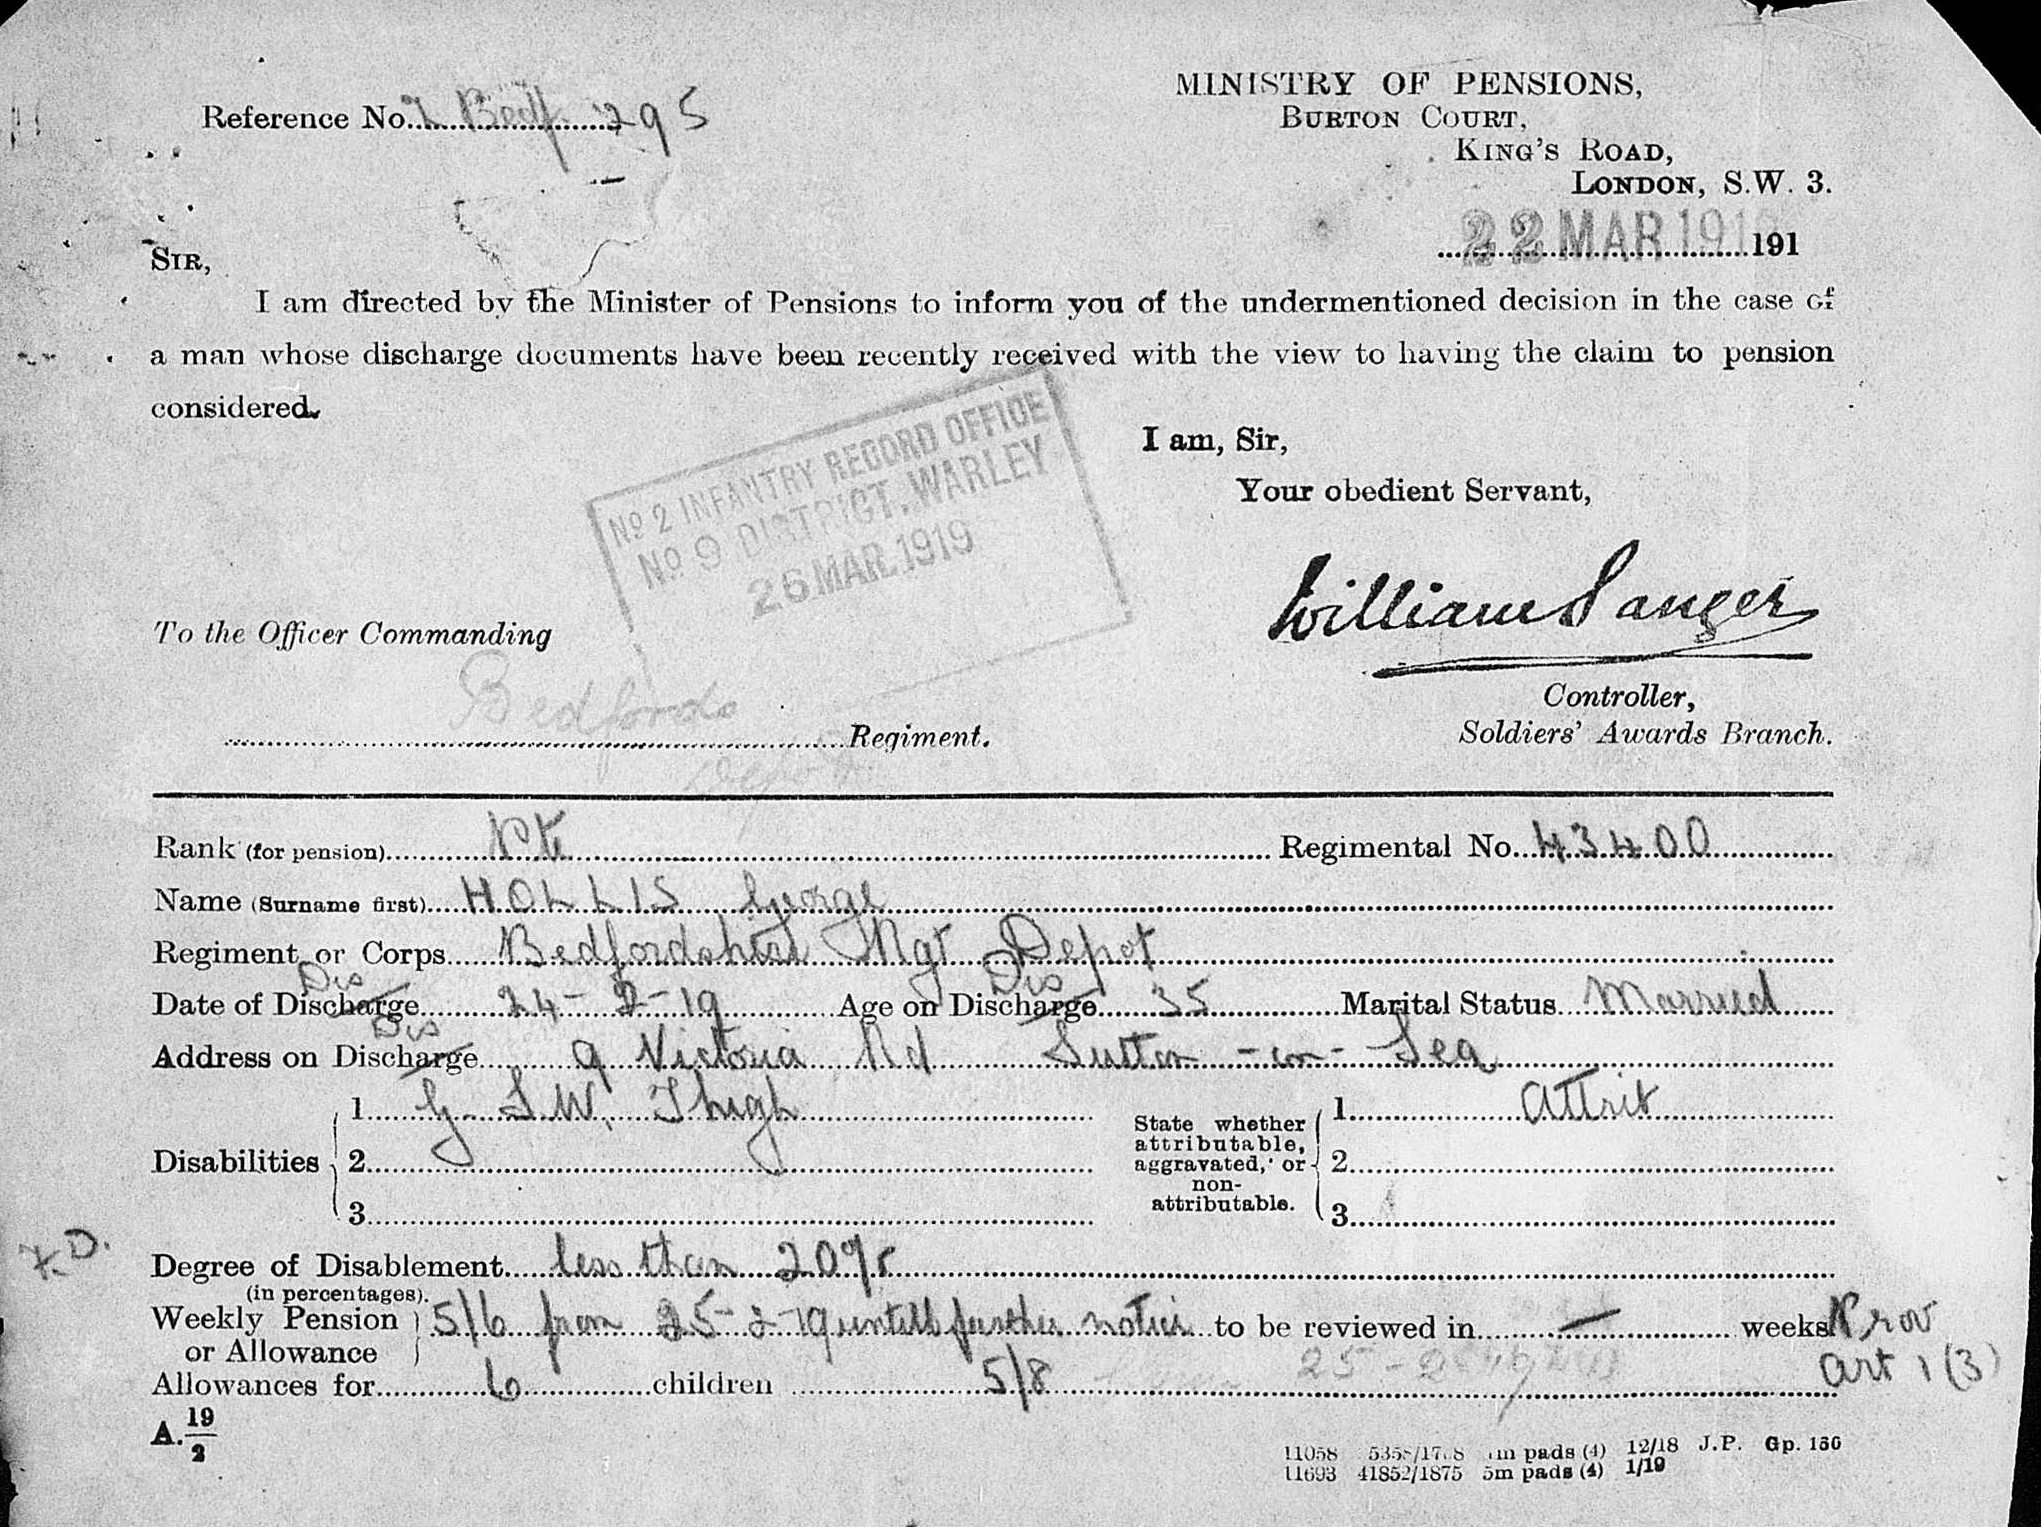 MINISTRY OF PENSIONS,
BURTON COURT,
KING'S ROAD,
LONDON, S.W. 3.
Reference No. Bedf 295
22 MAR 191 191
SIR,
I am directed by the Minister of Pensions to inform you of the undermentioned decision in the case of
a man whose discharge documents have been recently received with the view to having the claim to pension
considered.
No 2 INFANTRY RECORD OFFICE
No 9 DISTRICT, WARLEY
26 MAR. 1919
I am, Sir,
Your obedient Servant,
William Sanger
Controller,
Soldiers' Awards Branch.
To the Officer Commanding
Bedfords
Regiment.
Depot
Rank (for pension) Pte Regimental No. 43400
Name (Surname first) HOLLIS George
Regiment or Corps Bedfordshire Rgt Depot
Dis Dis
Date of Discharge 24-2-19 Age on Discharge 35 Marital Status Married
Dis
Address on Discharge 9 Victoria Rd Sutton-on-Sea
Disabilities 1 G.S.W. Thigh
2
3
State whether attributable, aggravated, or non-attributable. 1 Attrib
2
3
F.D.
Degree of Disablement less than 20%
(in percentages).
Weekly Pension or Allowance 5/6 from 25-2-19 until further notice to be reviewed in — weeks Prov
Art 1 (3)
Allowances for 6 children 5/8
A. 19/2
11058 m pads (4) 12/18 J.P. Gp. 136
11693 41852/1875 5m pads (4) 1/19